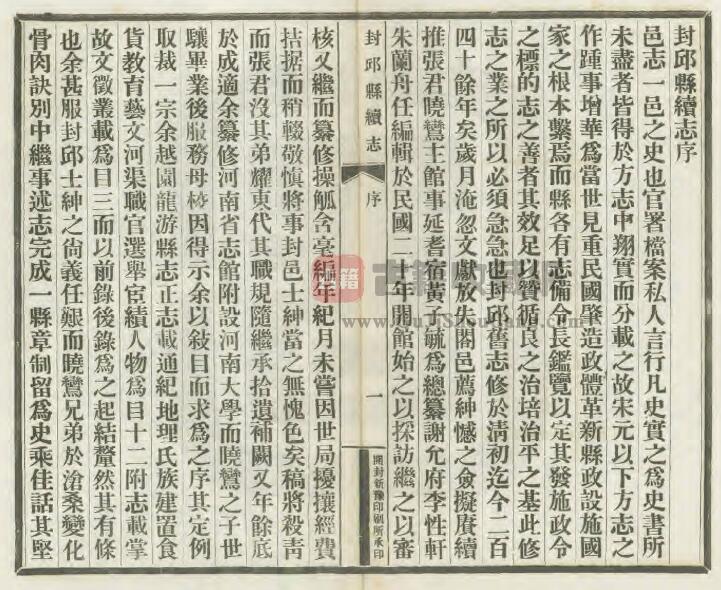 封邱縣續志序
邑志一邑之史也官署檔案私人言行凡史實之爲史書所
未盡者皆得於方志中翔實而分載之故宋元以下方志之
作踵事增華爲當世見重民國肇造政體革新縣政設施國
家之根本繫焉而縣各有志備令長鑑覽以定其發施政令
之標的志之善者其效足以贊循良之治培治平之基此修
志之業之所以必須急急也封邱舊志修於淸初迄今二百
四十餘年矣歲月淹忽文獻放失闔邑薦紳憾之僉擬賡續
推張君曉鸞主館事延耆宿黃子毓爲總纂謝允府李性軒
朱蘭舟任編輯於民國二十年開館始之以探訪繼之以審
封邱縣續志
序
一
開封新豫印刷所承印
核又繼而纂修操觚含毫編年紀月未嘗因世局擾攘經費
拮据而稍輟敬愼將事封邑士紳當之無愧色矣稿將殺靑
而張君沒其弟耀東代其職規隨繼承拾遺補闕又年餘底
於成適余纂修河南省志館附設河南大學而曉鸞之子世
驤畢業後服務母校因得示余以敍目而求爲之序其定例
取裁一宗余越園龍游縣志正志載通紀地理氏族建置食
貨敎育藝文河渠職官選舉宦績人物爲目十二附志載掌
故文徵叢載爲目三而以前錄後錄爲之起結釐然其有條
也余甚服封邱士紳之尙義任艱而曉鸞兄弟於滄桑變化
骨肉訣別中繼事述志完成一縣章制留爲史乘佳話其堅
古籍收藏
www.GuJiShouCang.com